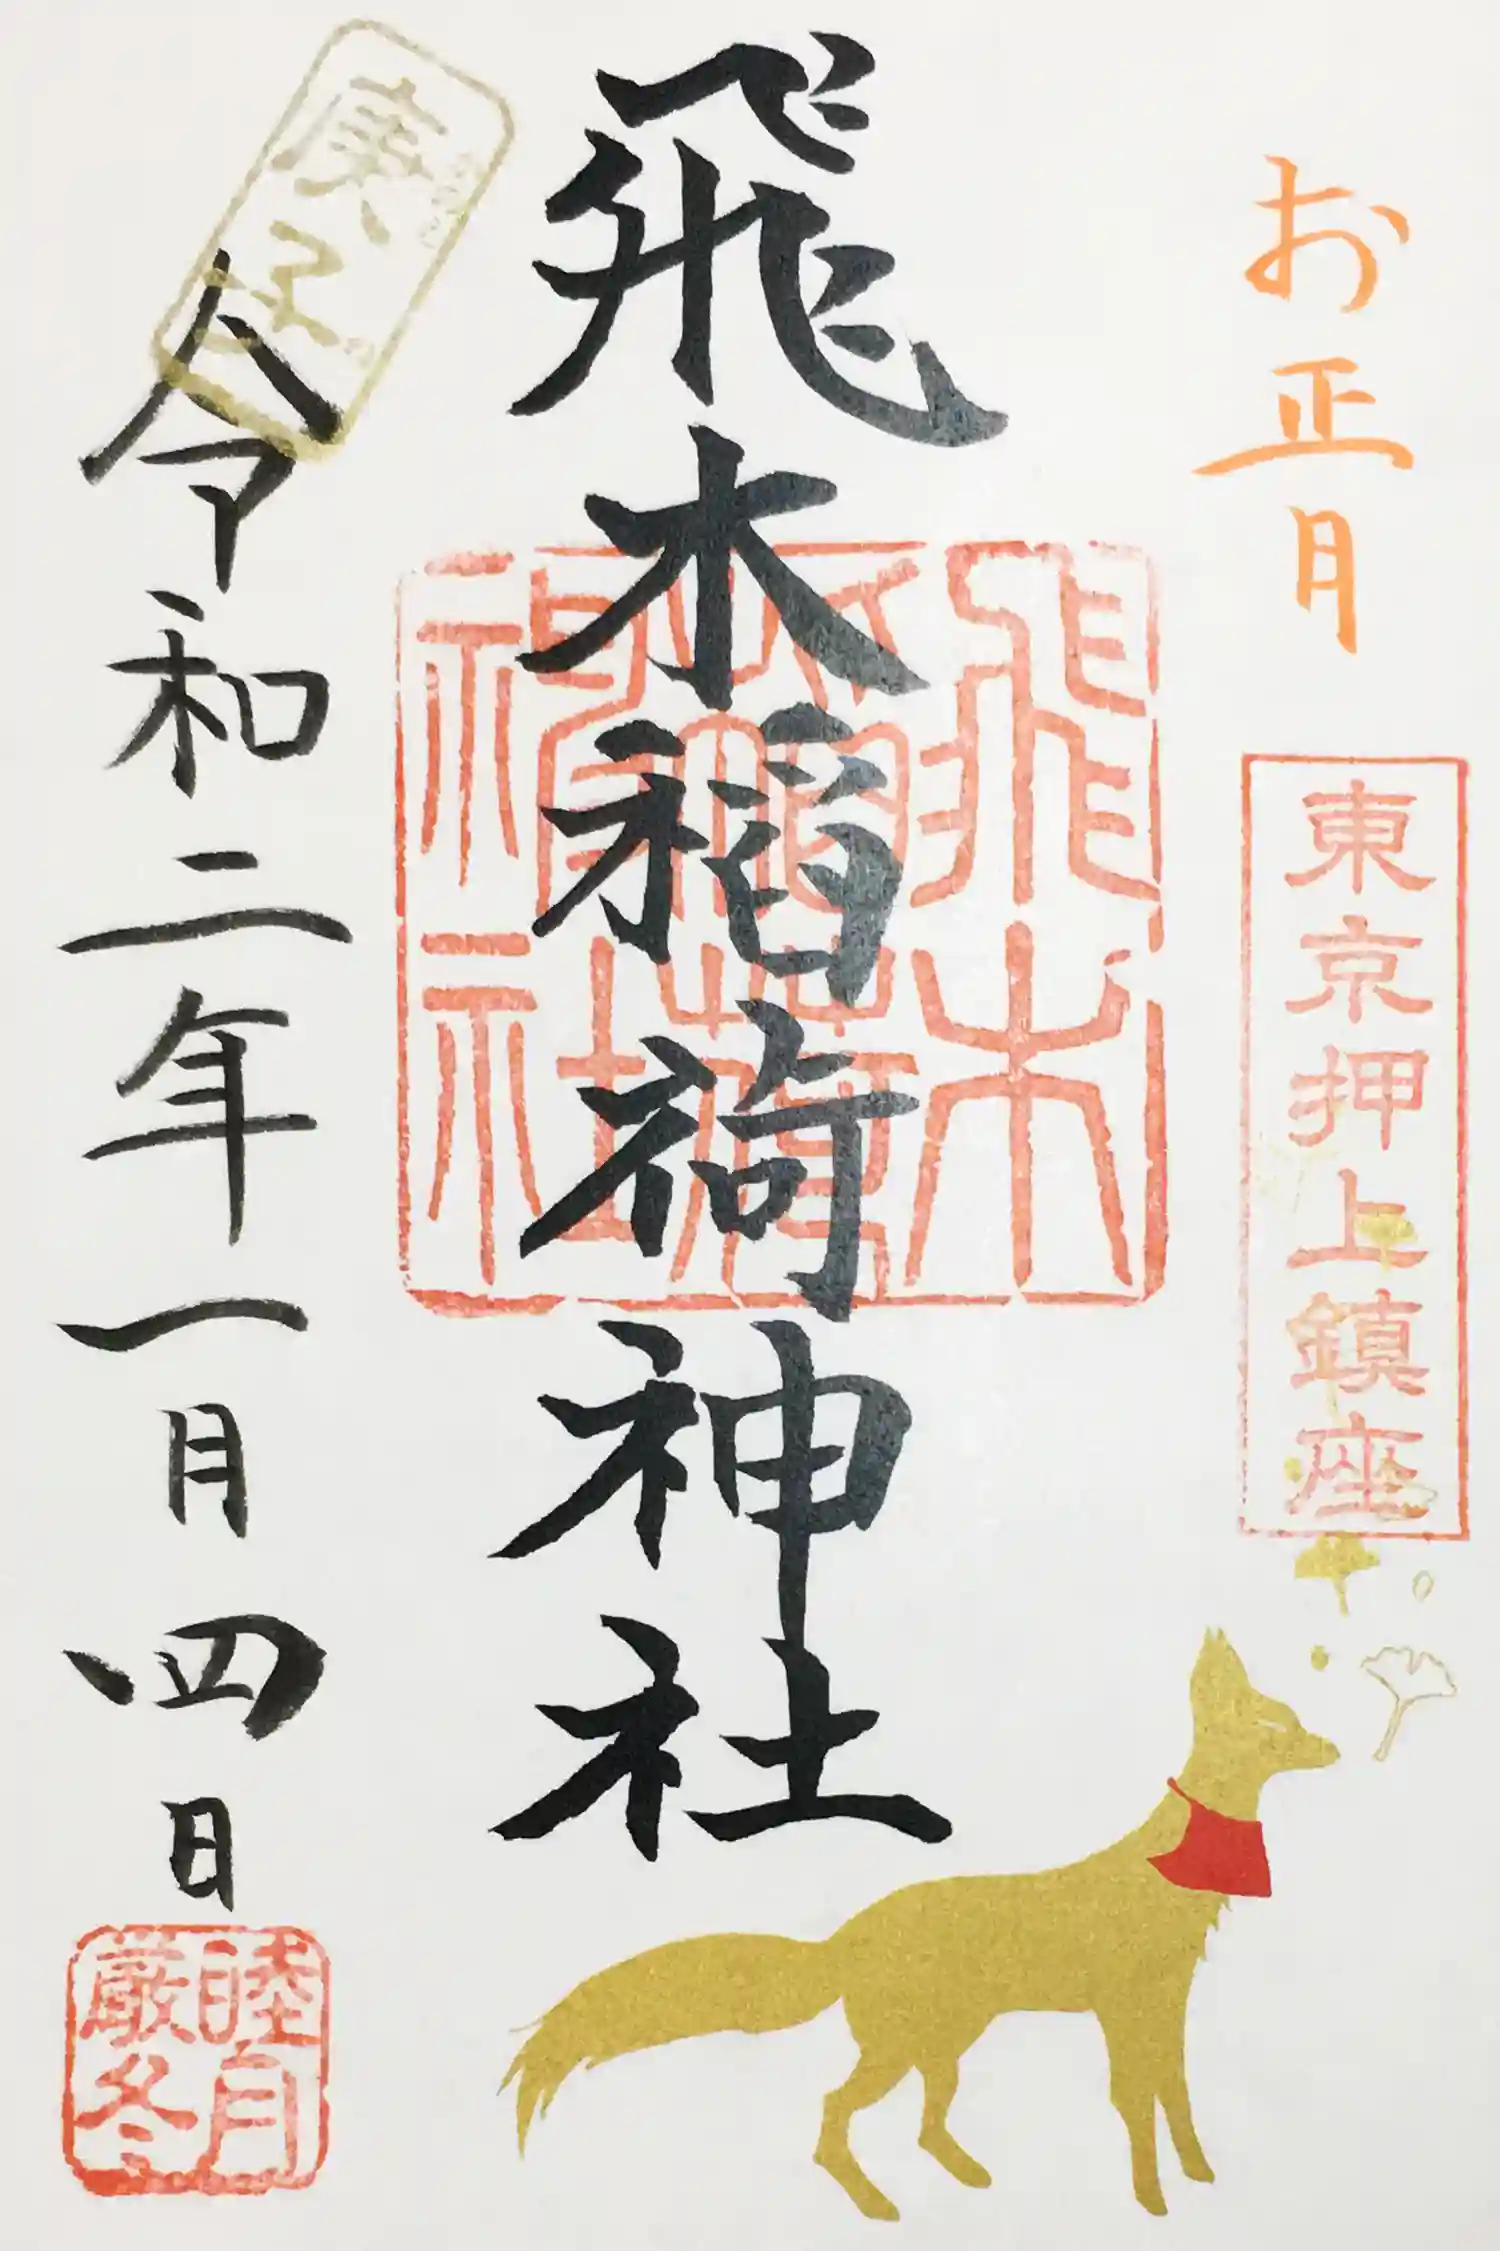 お正月
東京押上鎮座
飛木稲荷神社
飛木
稲荷
神社
令和二年一月四日
庚子
睦月
厳冬